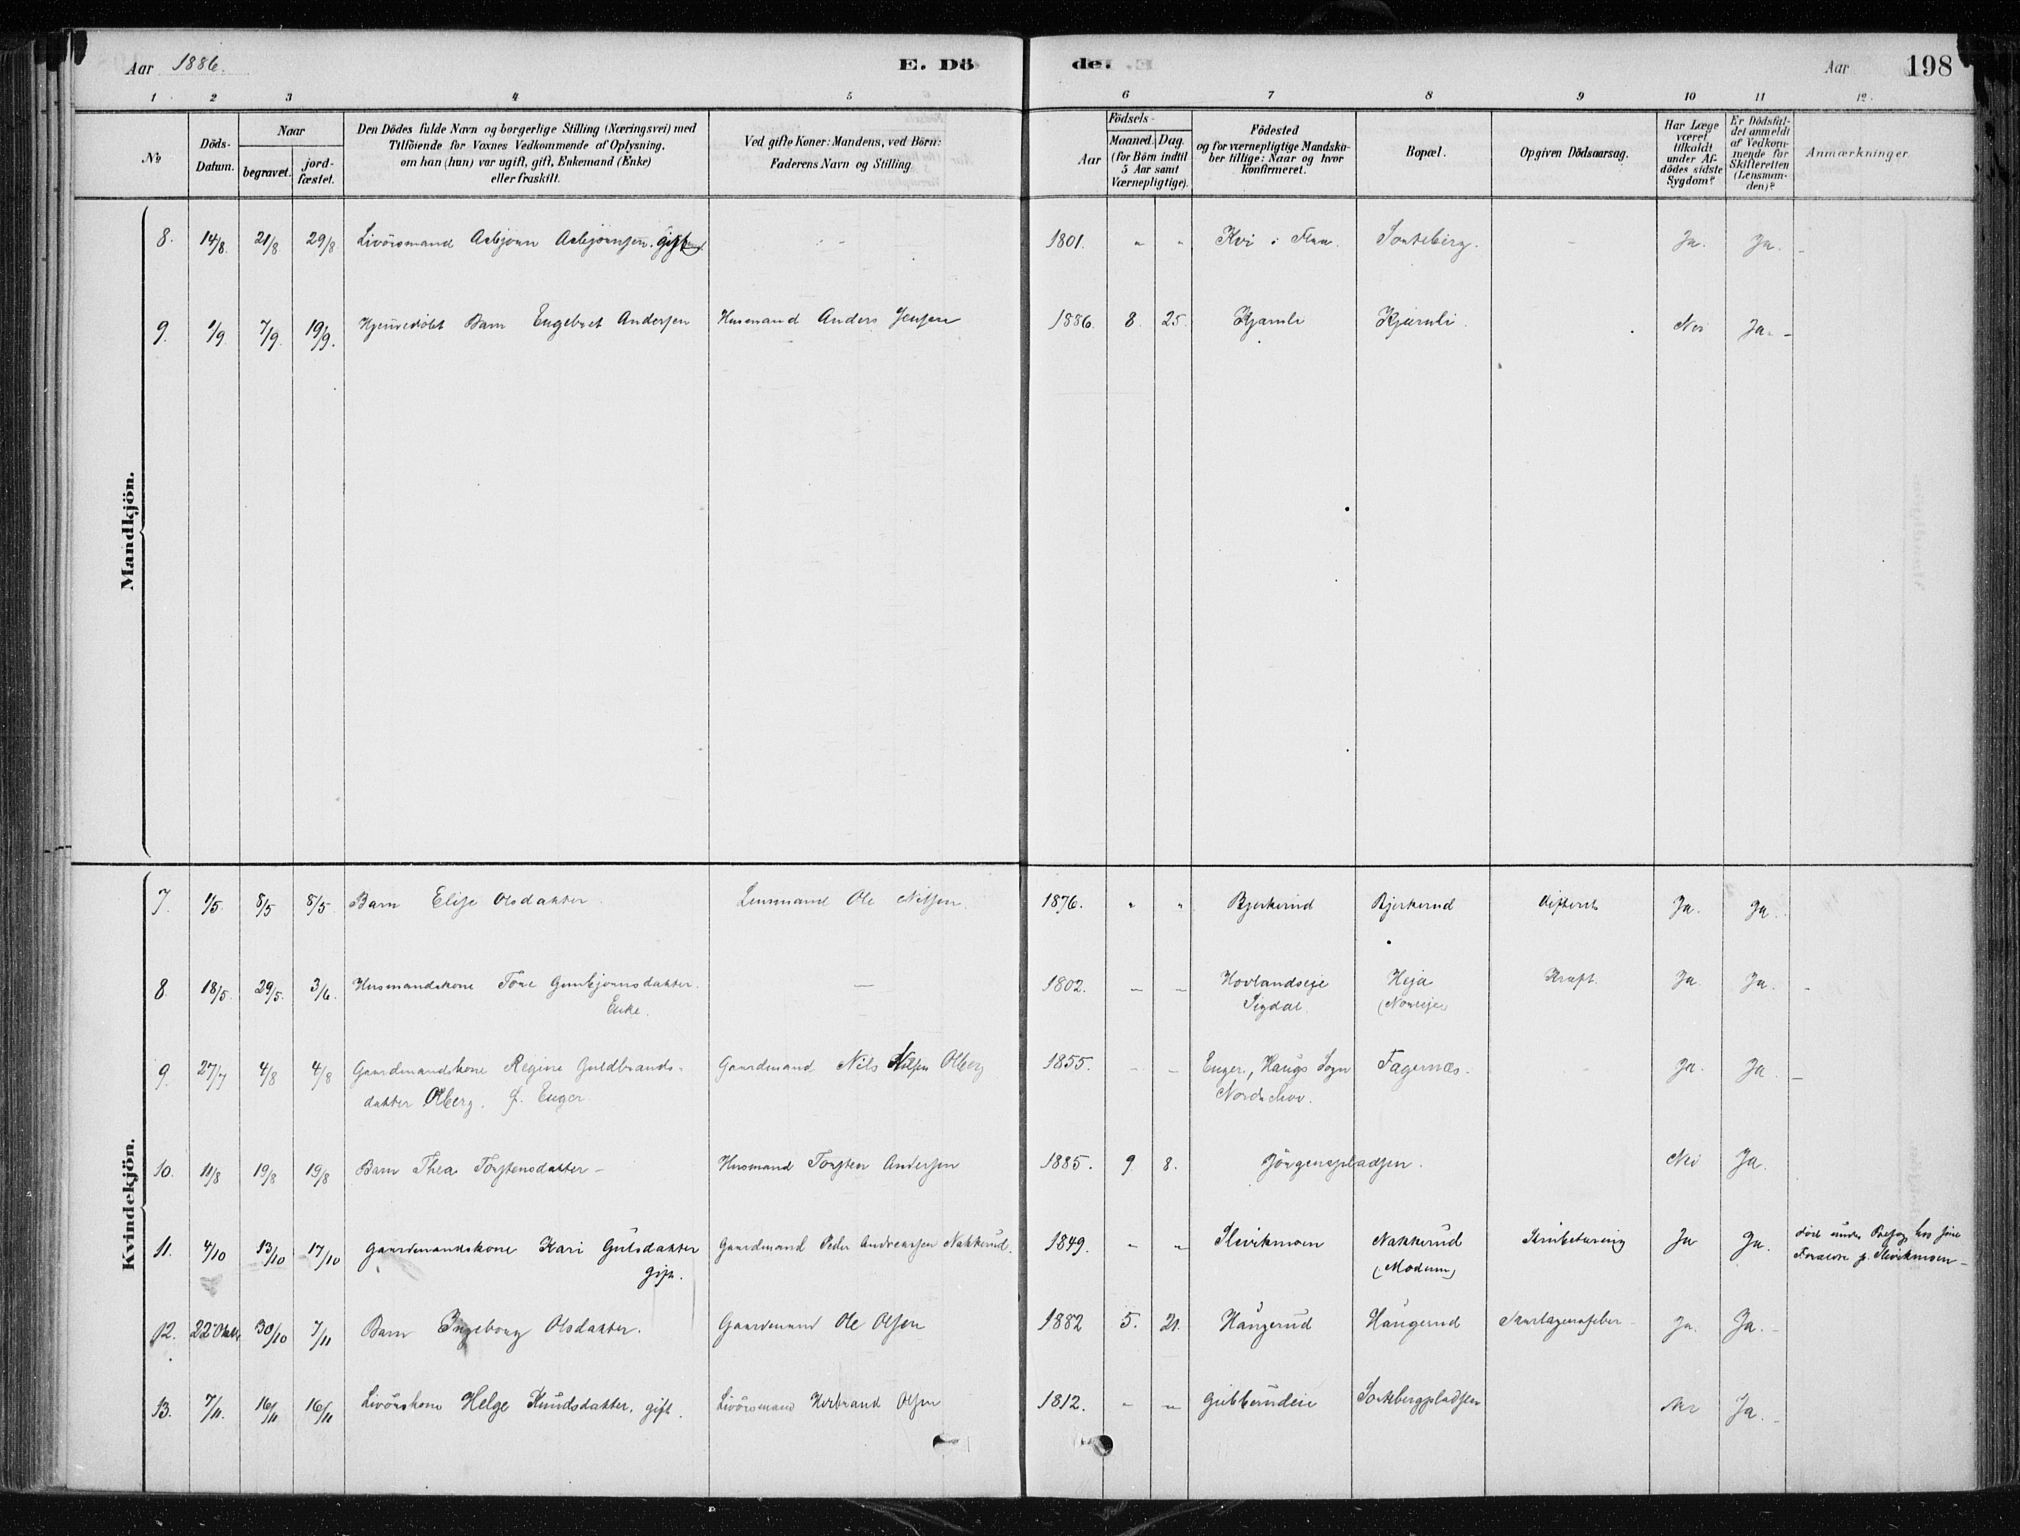 Aar 1886.
E. Dö
de.
Aar
198
1 2 3 4 5 6 7 8 9 10 11 12.
№
Döds-
Datum.
Naar
begravet.
jord-
fæstet.
Den Dödes fulde Navn og borgerlige Stilling (Næringsvei) med
Tilföiende for Voxnes Vedkommende af Oplysning.
om han (hun) var ugift, gift, Enkemand (Enke)
eller fraskilt.
Ved gifte Koner: Mandens, ved Börn:
Faderens Navn og Stilling.
Aar
Födsels-
Maaned. Dag.
(for Börn indtil
5 Aar samt
Værnepligtige).
Födested
og for værnepligtige Mandska-
ber tillige: Naar og hvor
konfirmeret.
Bopæl.
Opgiven Dödsaarsag.
Har Læge
været
tilkaldt
under Af-
dödes sidste
Sygdom?
Er Dödsfal-
det anmeldt
af Vedkom-
mende for
Skifteretten
(Lensman-
den)?
Anmærkninger
Mandkjön.
8. 14/8. 21/8 29/8 Livörsmand Asbjörn Asbjörnsen. gift - 1801. " " Kvi i Flaa. Sorteberg. - Ja. Ja. -
9. 1/9. 7/9. 19/9. Hjemmedöbt Barn Engebret Andersen Husmand Anders Jensen 1886. 8. 25. Kjærnli Kjærnli. Nei Ja. -
Kvindekjön.
7. 1/5. 8/5 8/5. Barn Elise Olsdatter. Lensmand Ole Nilsen. 1876. " " Bjerkerud Bjerkerud Difterit Ja. Ja.
8. 18/5. 29/5. 3/6. Husmandskone Tone Gunbjörnsdatter. — 1802. — — Hovlandseje Heja Kræft. Ja. Ja. -
Enke. Sigdal.
9. 27/7 4/8 4/8 Gaardmandskone Regine Guldbrands- Gaardmand Nils Nilsen Olberg 1855. - - Enger, Haugs Sogn Fagernæs. - Ja. Ja. -
datter Olberg. f. Enger. Norderhov.
10. 11/8 19/8 19/8 Barn Thea Torstensdatter - Husmand Torsten Andersen 1885. 9. 8. Jörgenspladsen. Nei Ja.
11. 4/10 13/10 17/10 Gaardmandskone Kari Gulsdatter Gaardmand Peder Andreassen Nakkerud. 1849. " " Slevikmoen Nakkerud Tæring Ja Ja. död under hos sine
gift. (Modum) Forældre p. Slevikmoen -
12. 22 Oktbr. 30/10 7/11 Barn Ingeborg Olsdatter. Gaardmand Ole Olsen 1882 5. 21. Haugerud Haugerud Skarlagensfeber - Ja. Ja. -
13. 7/11. 16/11 16/11 Livörskone Helge Knudsdatter, gift. Livörsmand Herbrand Olsen 1812. " " Gubberudeie Sortebergpladsen Nei Ja. -